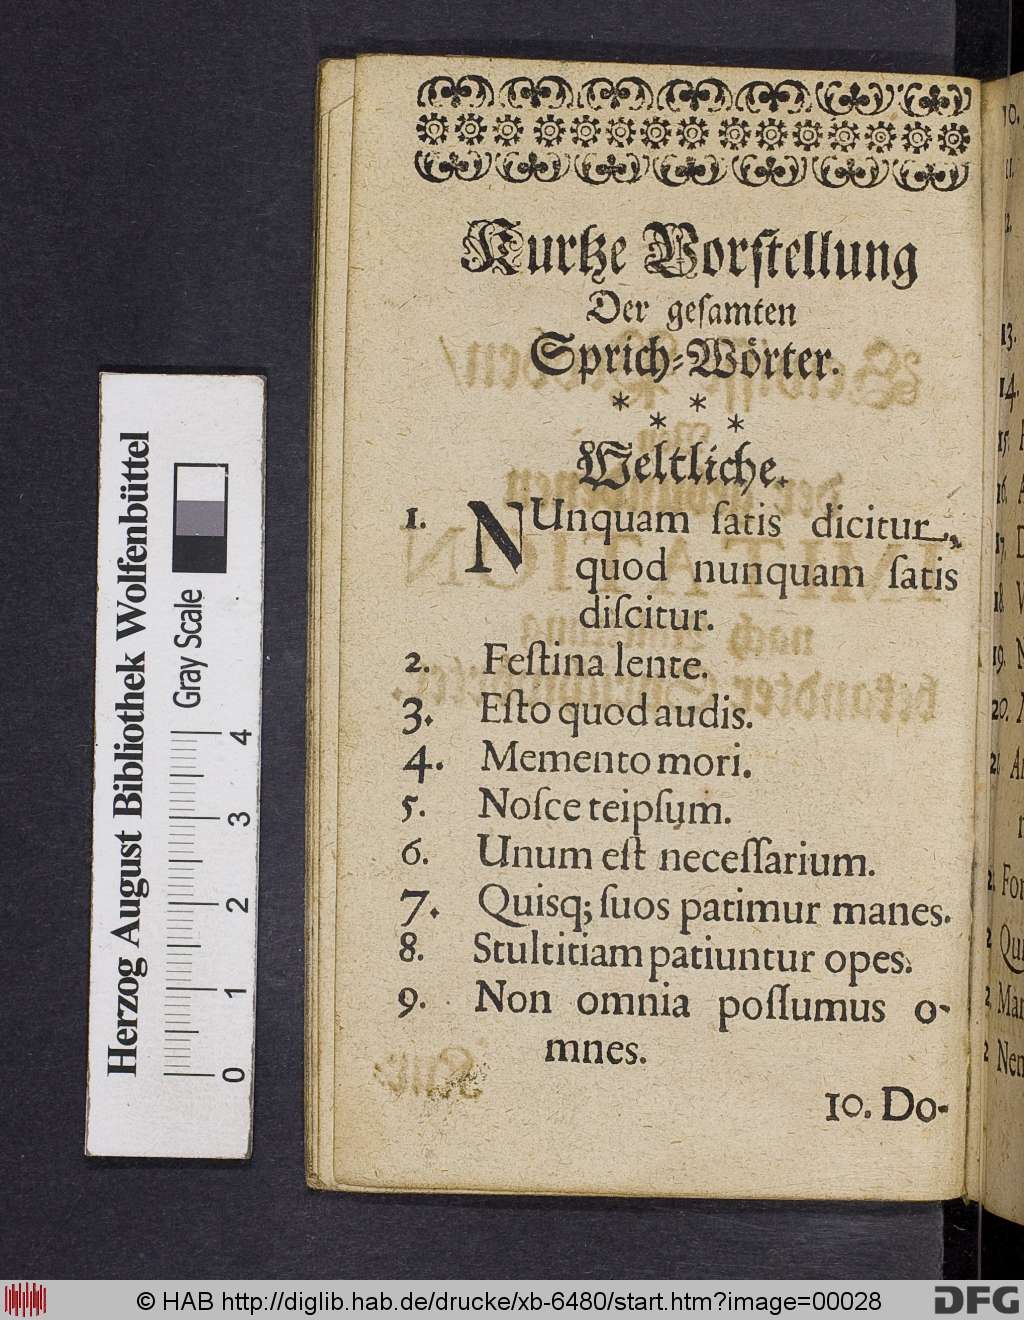 Kurtze Vorstellung
Der gesamten
Sprich-Wörter.
* * * *
Weltliche.
1. NUnquam ſatis dicitur,
quod nunquam ſatis
diſcitur.
2. Feſtina lente.
3. Eſto quod audis.
4. Memento mori.
5. Noſce teipſum.
6. Unum eſt neceſſarium.
7. Quisq; ſuos patimur manes.
8. Stultitiam patiuntur opes.
9. Non omnia poſſumus o-
mnes.
10. Do-
10.
11.
12.
13.
14.
15.
16.
17.
18.
19.
20.
For
Qui
Mar
Nem
Herzog August Bibliothek Wolfenbüttel
Gray Scale
0 1 2 3 4
© HAB http://diglib.hab.de/drucke/xb-6480/start.htm?image=00028
DFG